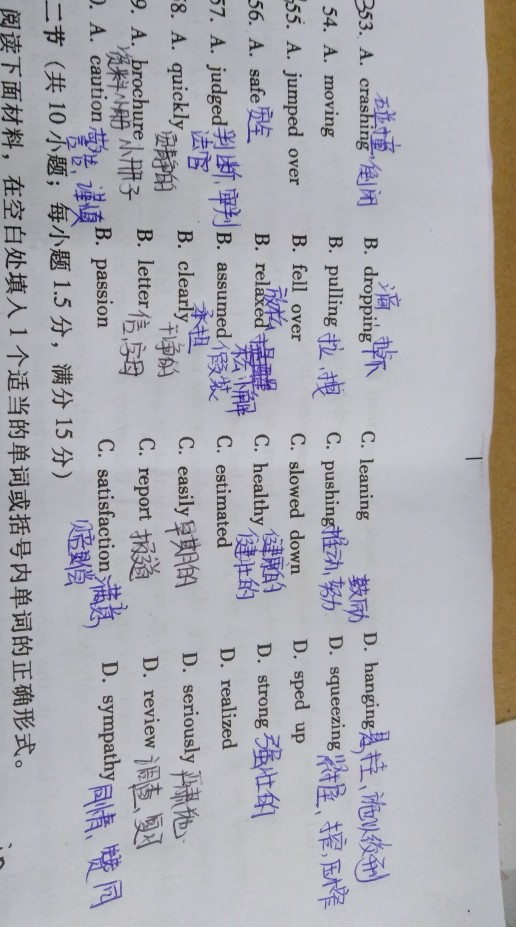 53. A. crashing 碰撞,倒闭 B. dropping 滴,掉 C. leaning D. hanging 悬挂、施以绞刑
54. A. moving B. pulling 拉,拽 C. pushing 推动,努力 鼓励 D. squeezing 挤,压榨
55. A. jumped over B. fell over C. slowed down D. sped up
56. A. safe 安全 B. relaxed 放松 C. healthy 健康的 健壮的 D. strong 强壮的
57. A. judged 判断,审判 法官 B. assumed 假装 承担 C. estimated D. realized
8. A. quickly B. clearly 干净的 C. easily 早期的 D. seriously 严肃地
9. A. brochure 小册子 B. letter 信,字母 C. report 报道 D. review 调查、复习
). A. caution 警告、谨慎 B. passion C. satisfaction 满意, 赔偿 D. sympathy 同情、赞同
二节(共 10 小题;每小题 1.5 分,满分 15 分)
阅读下面材料,在空白处填入 1 个适当的单词或括号内单词的正确形式。